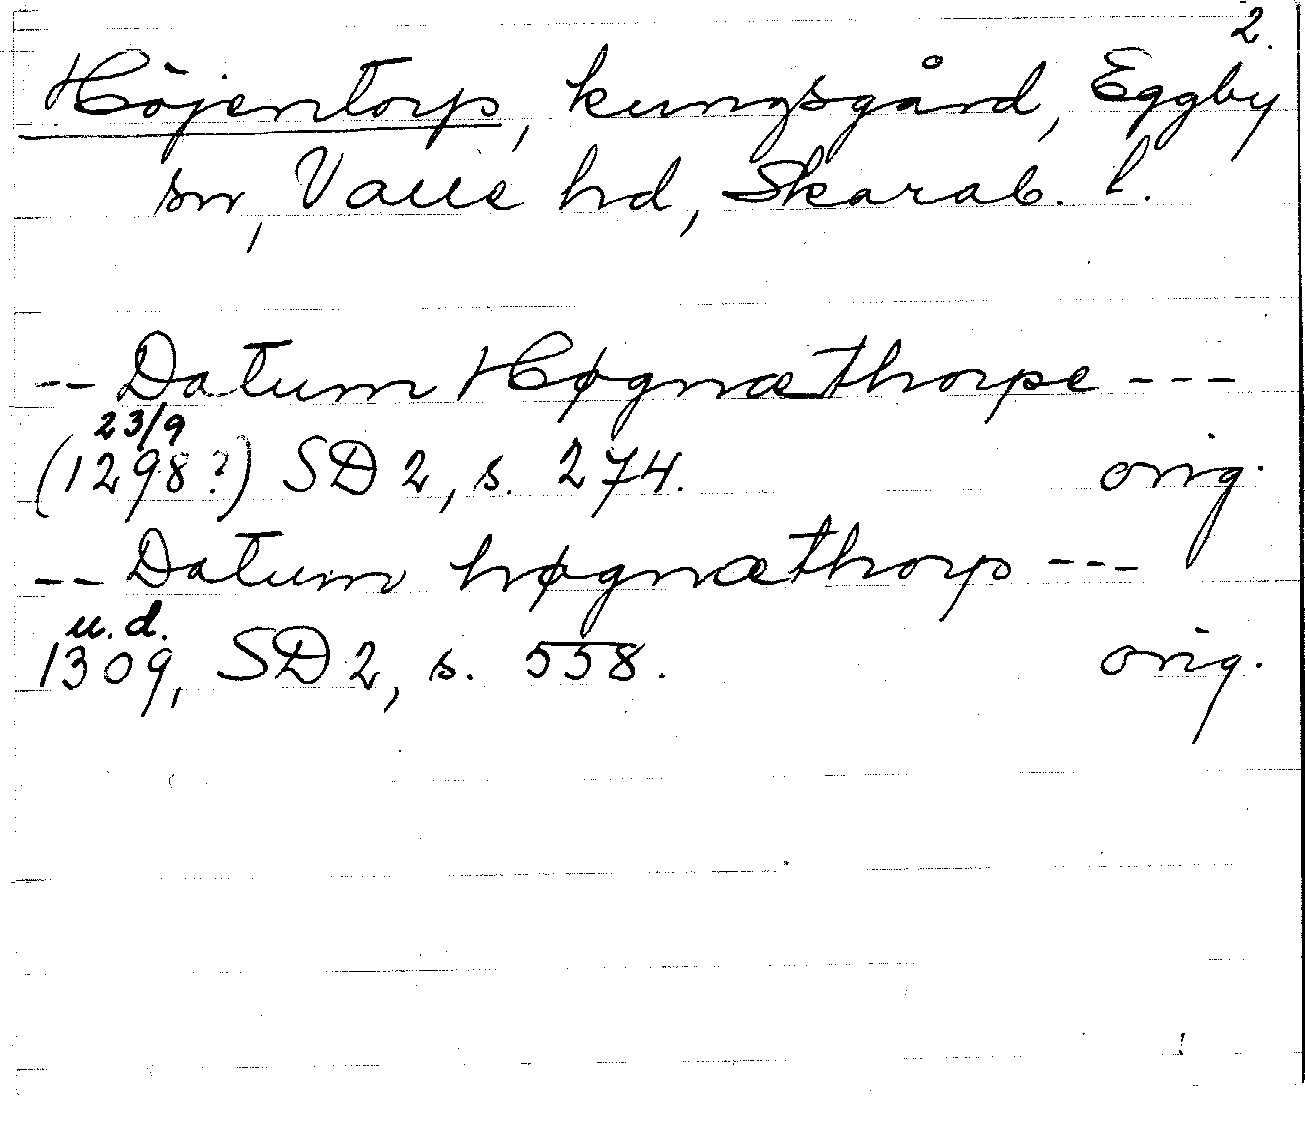 2.
Höjentorp, kungsgård, Eggby
sn, Valle hd, Skarab. l.
-- Datum Høgnæthorpe ---
23/9
(1298?) SD 2, s. 274. orig.
-- Datum høgnæthorp ---
u. d.
1309, SD 2, s. 558. orig.